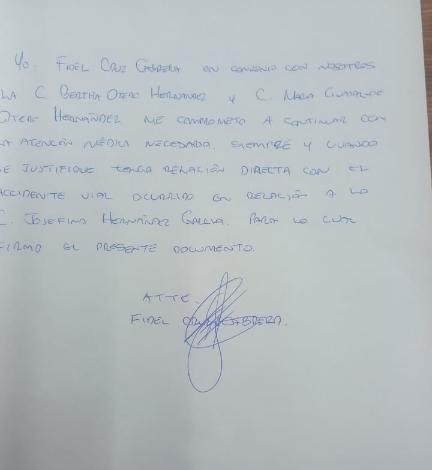 Yo. FIDEL CRUZ CABRERA EN CONVENIO CON NOSOTROS
LA C BERTHA OTERO HERNÁNDEZ Y C. MARIA GUADALUPE
OTERO HERNÁNDEZ ME COMPROMETO A CONTINUAR CON
LA ATENCIÓN MÉDICA NECESARIA, SIEMPRE Y CUANDO
SE JUSTIFIQUE TENGA RELACIÓN DIRECTA CON EL
ACCIDENTE VIAL OCURRIDO EN RELACIÓN A LA
C. JOSEFINA HERNÁNDEZ GARCIA. PARA LO CUAL
FIRMO EL PRESENTE DOCUMENTO.
ATTE.
FIDEL CRUZ CABRERA.